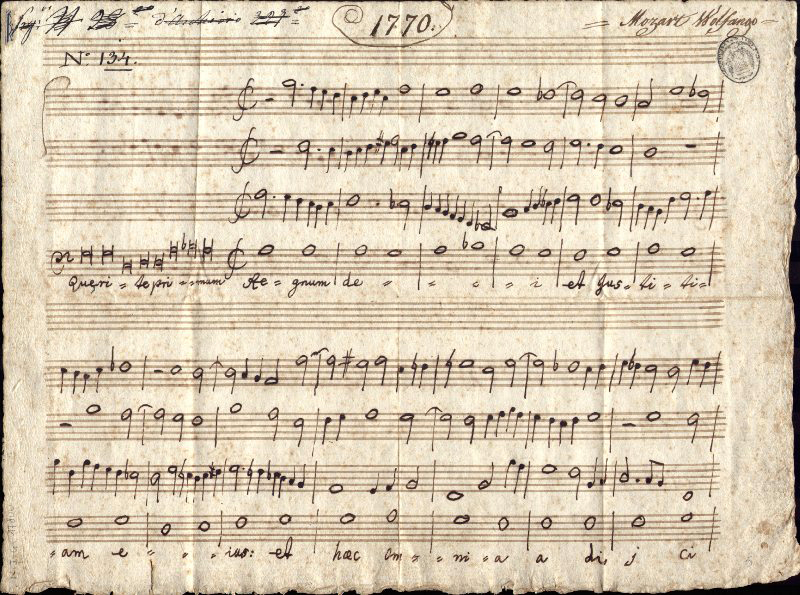 d'Archivio
1770.
Mozart Wolfango
N.º 134.
Quęri - te pri - - mum Re - gnum de - - - i et Jus - ti - ti -
- am e - - - ius: et hæc om - - ni - a a di j ci